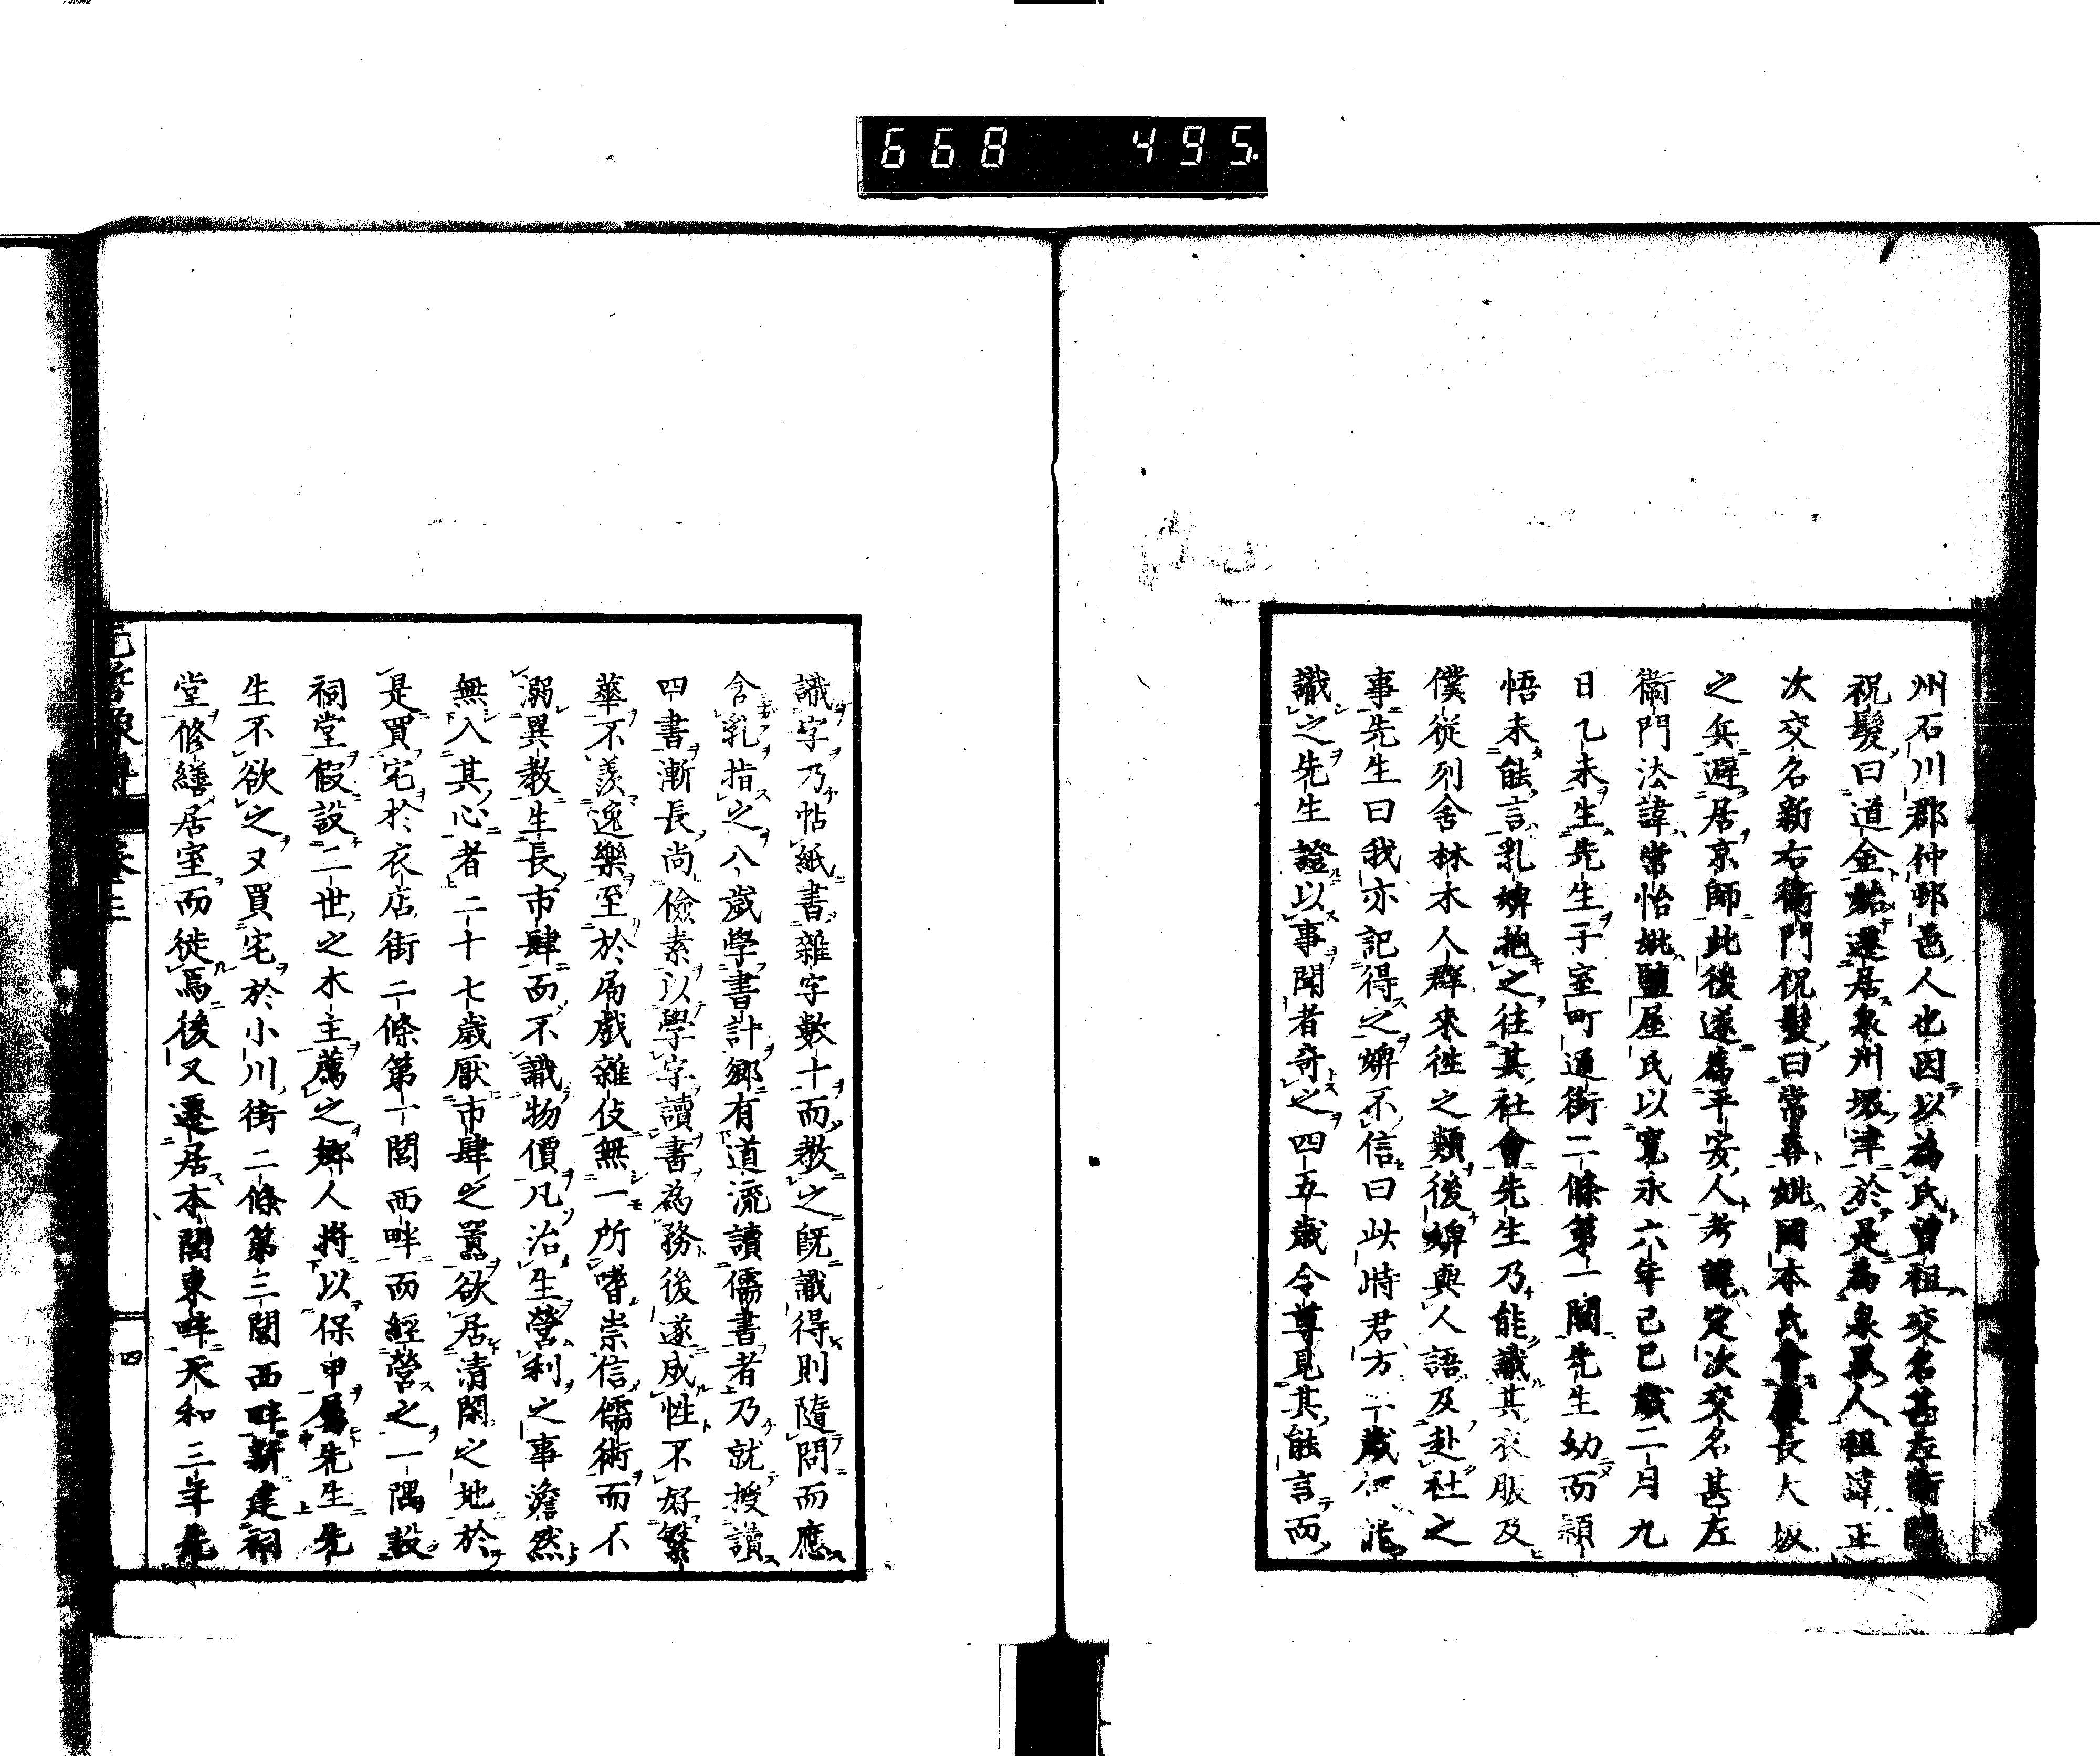 668 495
州石川郡仲邨邑人也因以為氏曽祖交名甚左衛門
祝髮曰道金始遷居泉州堺津於是為泉界人祖諱正
次交名新右衛門祝髮曰常喜妣岡本氏會慶長大坂
之兵避居京師此後遂為平安人考諱定次交名甚左
衛門法諱常怡妣鹽屋氏以寛永六年己巳歲二月九
日乙未生先生于室町通街二條第一閭先生幼而穎
悟未能言乳婢抱之往其社會先生乃能識其衣服及
僕從列舍林木人群來徃之類後婢與人語及赴社之
事先生曰我亦記得之婢不信曰此時君方二歲何能
識之先生證以事聞者奇之四五歲令尊見其能言而
識字乃帖紙書雜字數十而教之旣識得則隨問而應
含乳指之八歲學書計鄉有道流讀儒書者乃就授讀
四書漸長尚儉素以學字讀書為務後遂成性不好繁
華不羨逸樂至於房戲雜伎無一所嗜崇信儒術而不
溺異教生長市肆而不識物價凡治生營利之事澹然
無入其心者二十七歲厭市肆之囂欲居清閑之地於
是買宅於衣店街二條第一閭西畔而經營之一隅設
祠堂假設二世之木主薦之鄉人將以保甲屬先生先
生不欲之又買宅於小川街二條第三閭西畔新建祠
堂修繕居室而徙焉後又遷居本閭東畔天和三年先
四